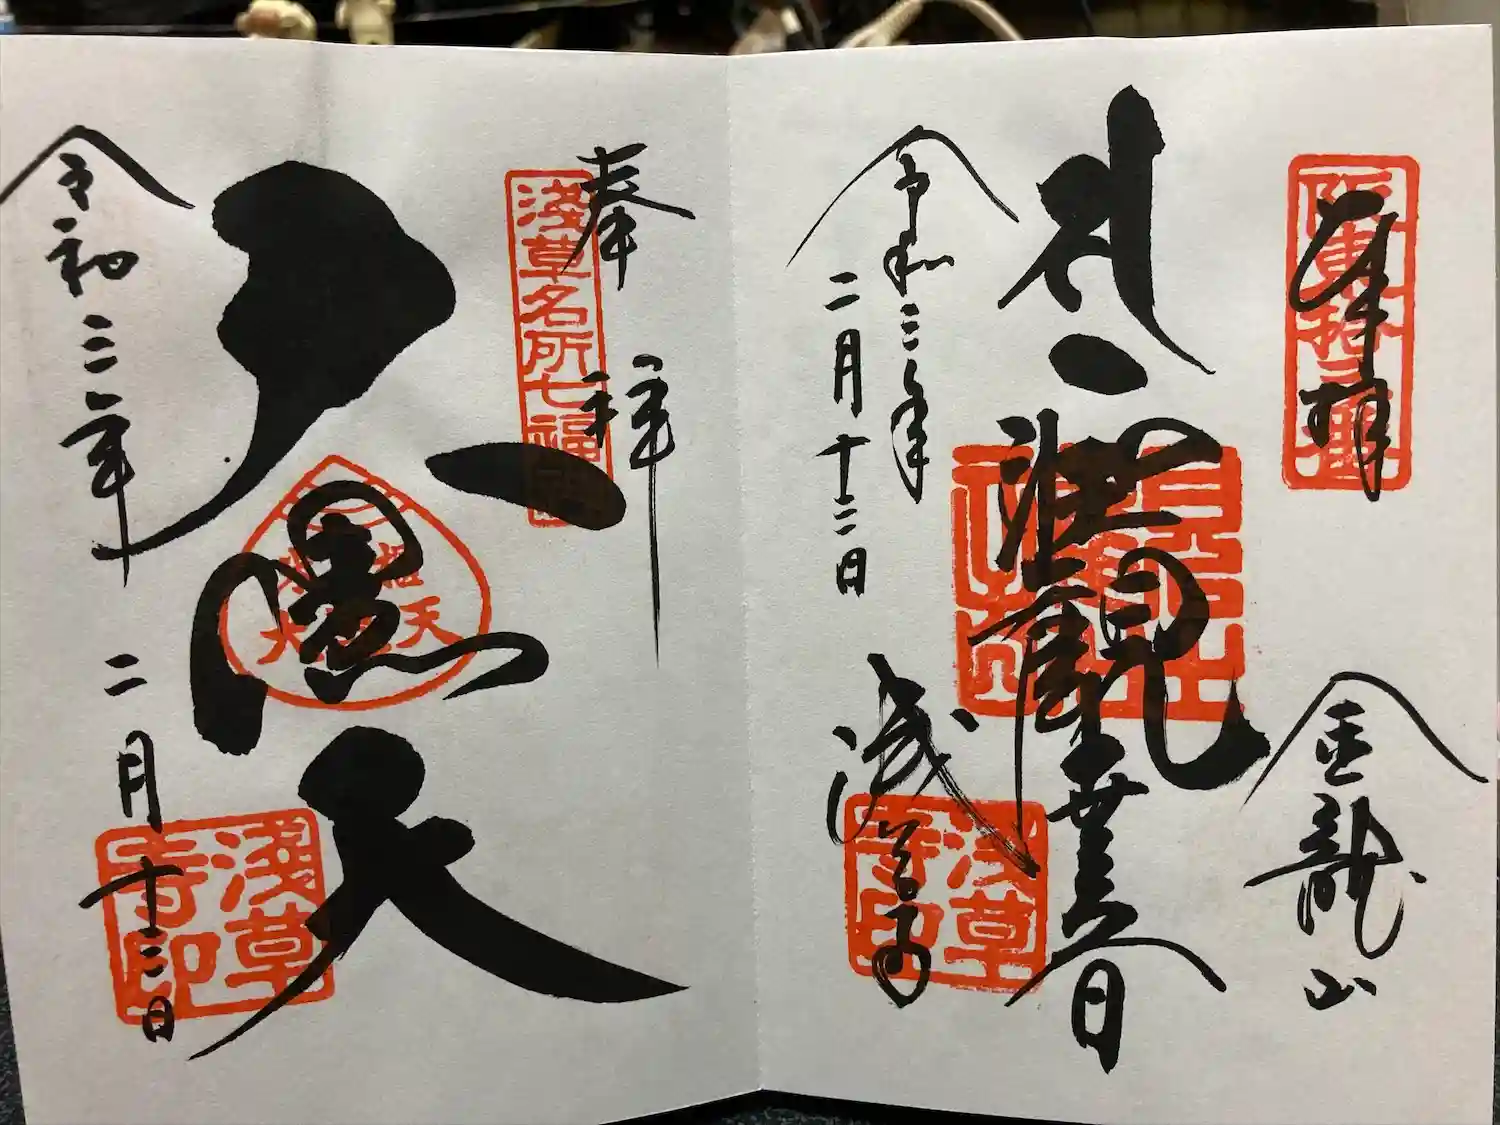 奉拝
阪東拾三番
金龍山
聖観世音
令和三年
二月十二日
浅草寺
淺草寺印
奉拝
淺草名所七福神
大黒天
令和三年
二月十二日
淺草寺印